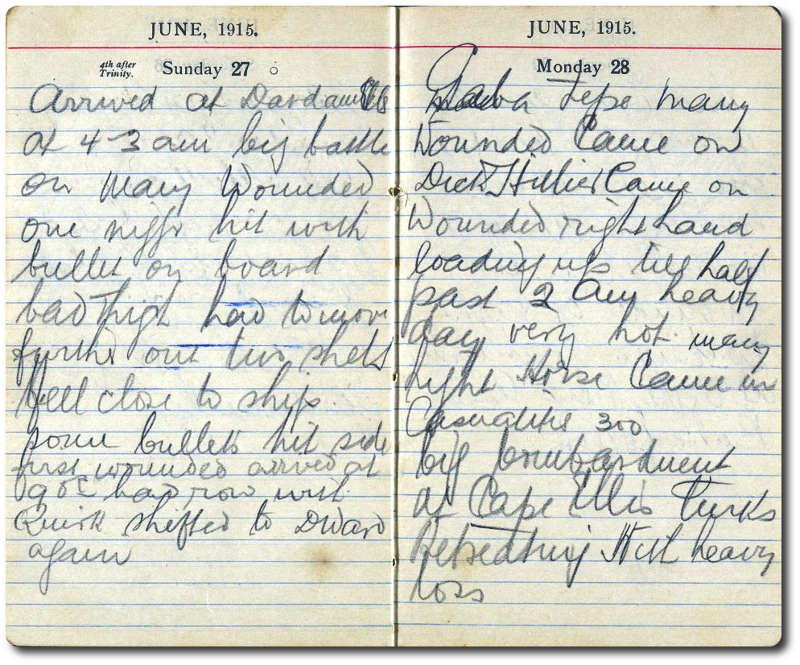 JUNE, 1915.
4th after Trinity. Sunday 27
Arrived at Dardanelles
at 4-3 am big battle
on Many Wounded
one niggr hit with
bullet on board
bad thigh had to move
further out two shels
fell close to ship
some bullets hit side
first wounded arrived at
9 oc had row with
Quirk shifted to D Ward
again
JUNE, 1915.
Monday 28
Gaba Tepe many
Wounded Came on
Dick Hillier Came on
Wounded right hand
loading up till half
past 2 Am heavy
day very hot many
light Horse Came in
Casualitie 300
big bombardment
at Cape Ellis Turks
Retreating With heavy
loss